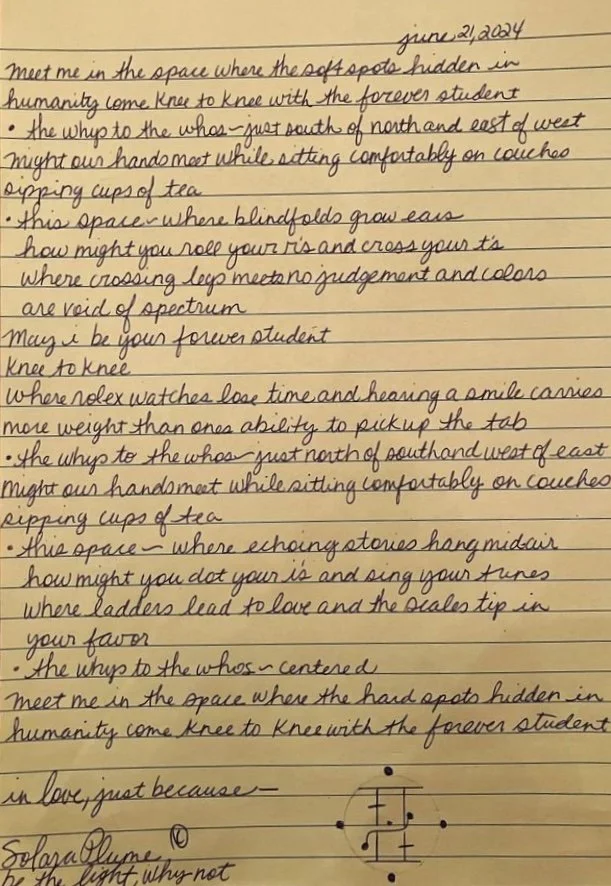 june 21, 2024
meet me in the space where the soft spots hidden in
humanity come knee to knee with the forever student
• the whys to the whos~just south of north and east of west
might our hands meet while sitting comfortably on couches
sipping cups of tea
• this space~where blindfolds grow ears
how might you roll your r's and cross your t's
where crossing legs meets no judgement and colors
are void of spectrum
may i be your forever student
knee to knee
where rolex watches lose time and hearing a smile carries
more weight than ones ability to pick up the tab
• the whys to the whos~just north of south and west of east
might our hands meet while sitting comfortably on couches
sipping cups of tea
• this space~where echoing stories hang midair
how might you dot your i's and sing your tunes
where ladders lead to love and the scales tip in
your favor
• the whys to the whos~centered
meet me in the space where the hard spots hidden in
humanity come knee to knee with the forever student
in love, just because—
Solara Plume
be the light, why not